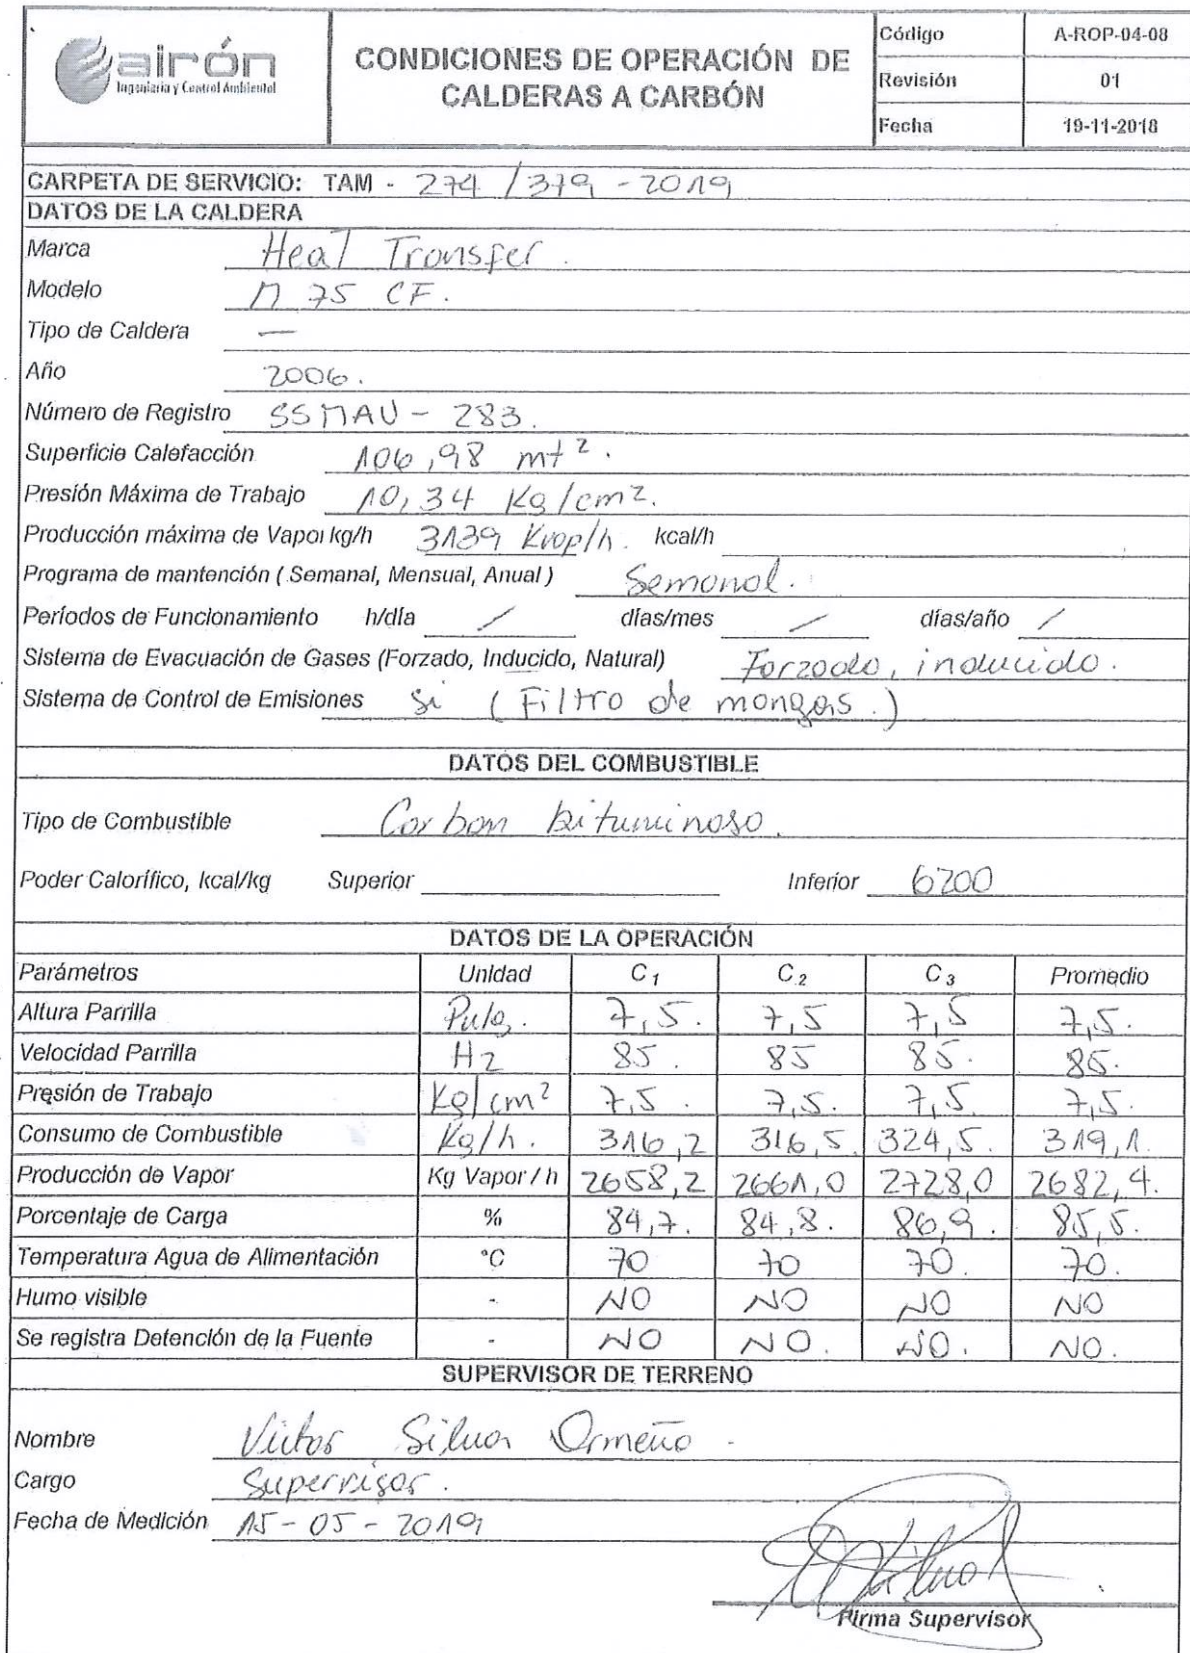 airón
Ingeniería y Control Ambiental
CONDICIONES DE OPERACIÓN DE
CALDERAS A CARBÓN
Código A-ROP-04-08
Revisión 01
Fecha 19-11-2018
CARPETA DE SERVICIO: TAM - 274 / 379 - 2019
DATOS DE LA CALDERA
Marca Heat Transfer.
Modelo M 75 CF.
Tipo de Caldera —
Año 2006.
Número de Registro SSMAU - 283.
Superficie Calefacción 106,98 mt².
Presión Máxima de Trabajo 10,34 Kg/cm².
Producción máxima de Vapor kg/h 3139 Kvap/h. kcal/h
Programa de mantención ( Semanal, Mensual, Anual ) Semanal.
Períodos de Funcionamiento h/día / días/mes / días/año /
Sistema de Evacuación de Gases (Forzado, Inducido, Natural) Forzado, inducido.
Sistema de Control de Emisiones Si (Filtro de mangas.)
DATOS DEL COMBUSTIBLE
Tipo de Combustible Carbon bituminoso.
Poder Calorífico, kcal/kg Superior Inferior 6200
DATOS DE LA OPERACIÓN
Parámetros Unidad C1 C2 C3 Promedio
Altura Parrilla Pulg. 7,5. 7,5 7,5 7,5.
Velocidad Parrilla Hz 85. 85 85. 85.
Presión de Trabajo Kg/cm² 7,5. 7,5. 7,5. 7,5.
Consumo de Combustible Kg/h. 316,2 316,5 324,5. 319,1.
Producción de Vapor Kg Vapor / h 2658,2 2661,0 2728,0 2682,4.
Porcentaje de Carga % 84,7. 84,8. 86,9. 85,5.
Temperatura Agua de Alimentación °C 70 70 70. 70.
Humo visible - NO NO NO NO
Se registra Detención de la Fuente - NO NO. NO. NO.
SUPERVISOR DE TERRENO
Nombre Victor Silva Ormeño.
Cargo Supervisor.
Fecha de Medición 15-05-2019
Firma Supervisor